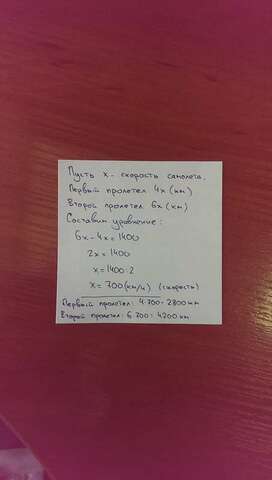 Пусть x - скорость самолета.
Первый пролетел 4x (км)
Второй пролетел 6x (км)
Составим уравнение:
6x - 4x = 1400
2x = 1400
x = 1400:2
x = 700 (км/ч) (скорость)
Первый пролетел: 4·700 = 2800 км
Второй пролетел: 6·700 = 4200 км